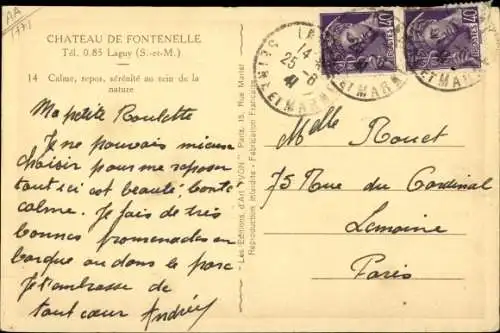 AA
(77)
CHATEAU DE FONTENELLE
Tél. 0.85 Lagny (S.-et-M.)
14 Calme, repos, sérénité au sein de la
nature
Ma petite Poulette
Je ne pouvais mieux
choisir pour me reposer
tout ici est beauté, bonté
calme. Je fais de très
bonnes promenades en
barque ou dans le parc
Je t'embrasse de
tout cœur Andrée
"Les Editions d'Art YVON" Paris, 15, Rue Martel
Reproduction Interdite - Fabrication Française
14
25-6
41
SEINE ET MARNE
40
40
Melle Rouet
75 Rue du Cardinal
Lemoine
Paris